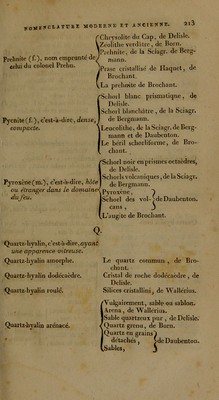 NOMENCLATURE MODERNE ET ANCIENNE. 213
Prehnite (f.), nom emprunté de celui du colonel Prehn.
Chrysolite du Cap, de Delisle.
Zéolithe verdâtre, de Born.
Prehnite, de la Sciagr. de Bergmann.
Prase cristallisé de Haquet, de Brochant.
La prehnite de Brochant.
Pycnite (f.), c'est-à-dire, dense, compacte.
Schorl blanc prismatique, de Delisle.
Schorl blanchâtre, de la Sciagr. de Bergmann.
Leucolithe, de la Sciagr. de Bergmann et de Daubenton.
Le béril schorliforme, de Brochant.
Pyroxène (m.), c'est-à-dire, hôte ou étranger dans le domaine du feu.
Schorl noir en prismes octoèdres, de Delisle.
Schorls volcaniques, de la Sciagr. de Bergmann.
Pyroxène,
Schorl des volcans,
de Daubenton.
L'augite de Brochant.
Q.
Quartz-hyalin, c'est-à-dire, ayant une apparence vitreuse.
Quartz-hyalin amorphe.
Le quartz commun, de Brochant.
Quartz-hyalin dodécaèdre.
Cristal de roche dodécaèdre, de Delisle.
Quartz-hyalin roulé.
Silices cristallini, de Wallérius.
Quartz-hyalin arénacé.
Vulgairement, sable ou sablon.
Arena, de Wallerius.
Sable quartzeux pur, de Delisle.
Quartz grenu, de Born.
Quartz en grains détachés,
Sables,
de Daubenton.